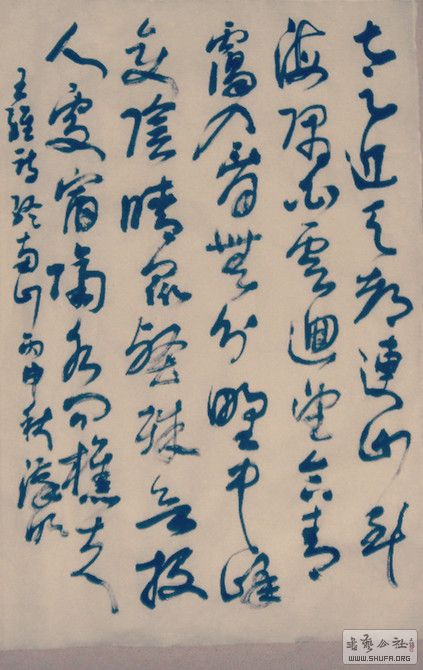 太乙近天都連山到
海隅白雲迴望合青
靄入看無分野中峰
變陰晴衆壑殊欲投
人處宿隔水問樵夫
王維詩終南山 丙申秋
書藝公社
WWW.SHUFA.ORG